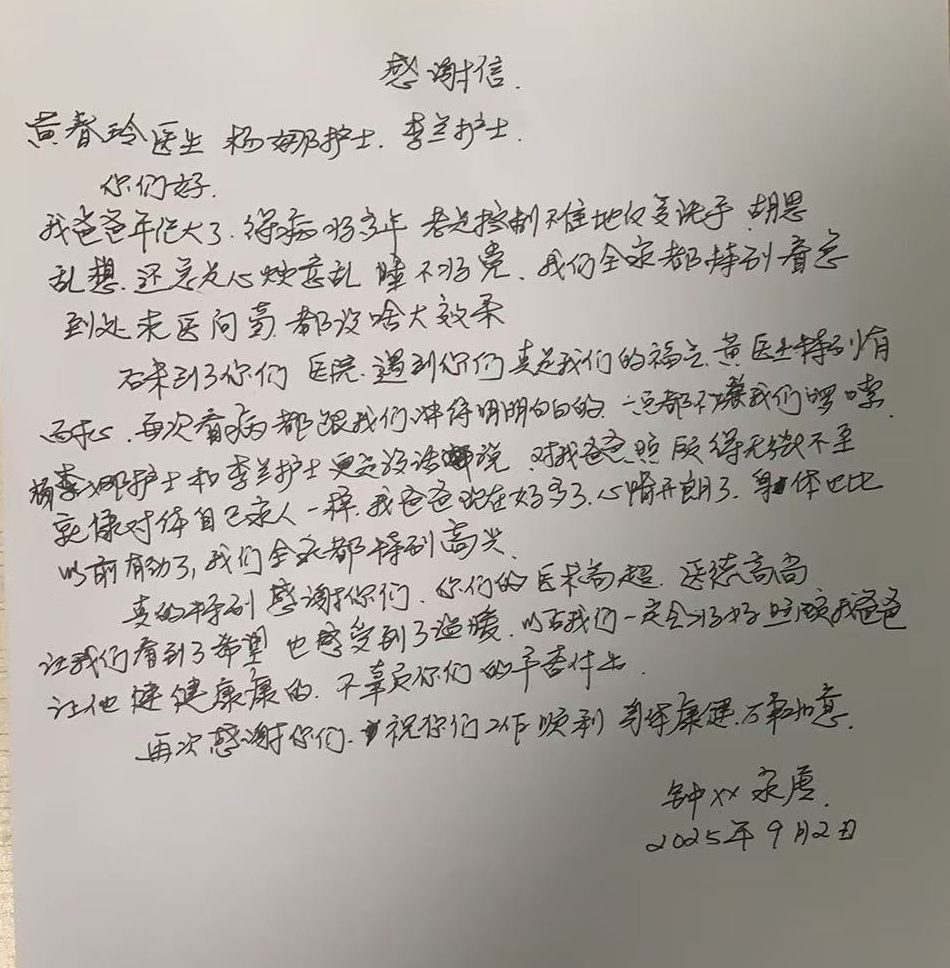 感谢信.
黄春玲医生 杨娜护士. 李兰护士.
你们好.
我爸爸年纪大了. 得病好多年 老是控制不住地反复洗手 胡思
乱想. 还总是心烦意乱 睡不好觉. 我们全家都特别着急
到处求医问药 都没啥大效果
后来到了你们 医院. 遇到你们 真是我们的福气. 黄医生特别有
耐心. 每次看病都跟我们讲得明明白白的. 一点都不嫌我们啰嗦.
杨娜护士和李兰护士更是没话说 对我爸爸照顾得无微不至
就像对待自己家人一样. 我爸爸现在好多了. 心情开朗了. 身体也比
以前有劲了, 我们全家都特别高兴.
真的特别感谢你们. 你们的医术高超. 医德高尚
让我们看到了希望 也感受到了温暖. 以后我们一定会好好照顾我爸爸
让他健健康康的. 不辜负你们的辛苦付出.
再次感谢你们. 祝你们工作顺利 身体康健. 万事如意.
钟xx 家属.
2025年9月2日